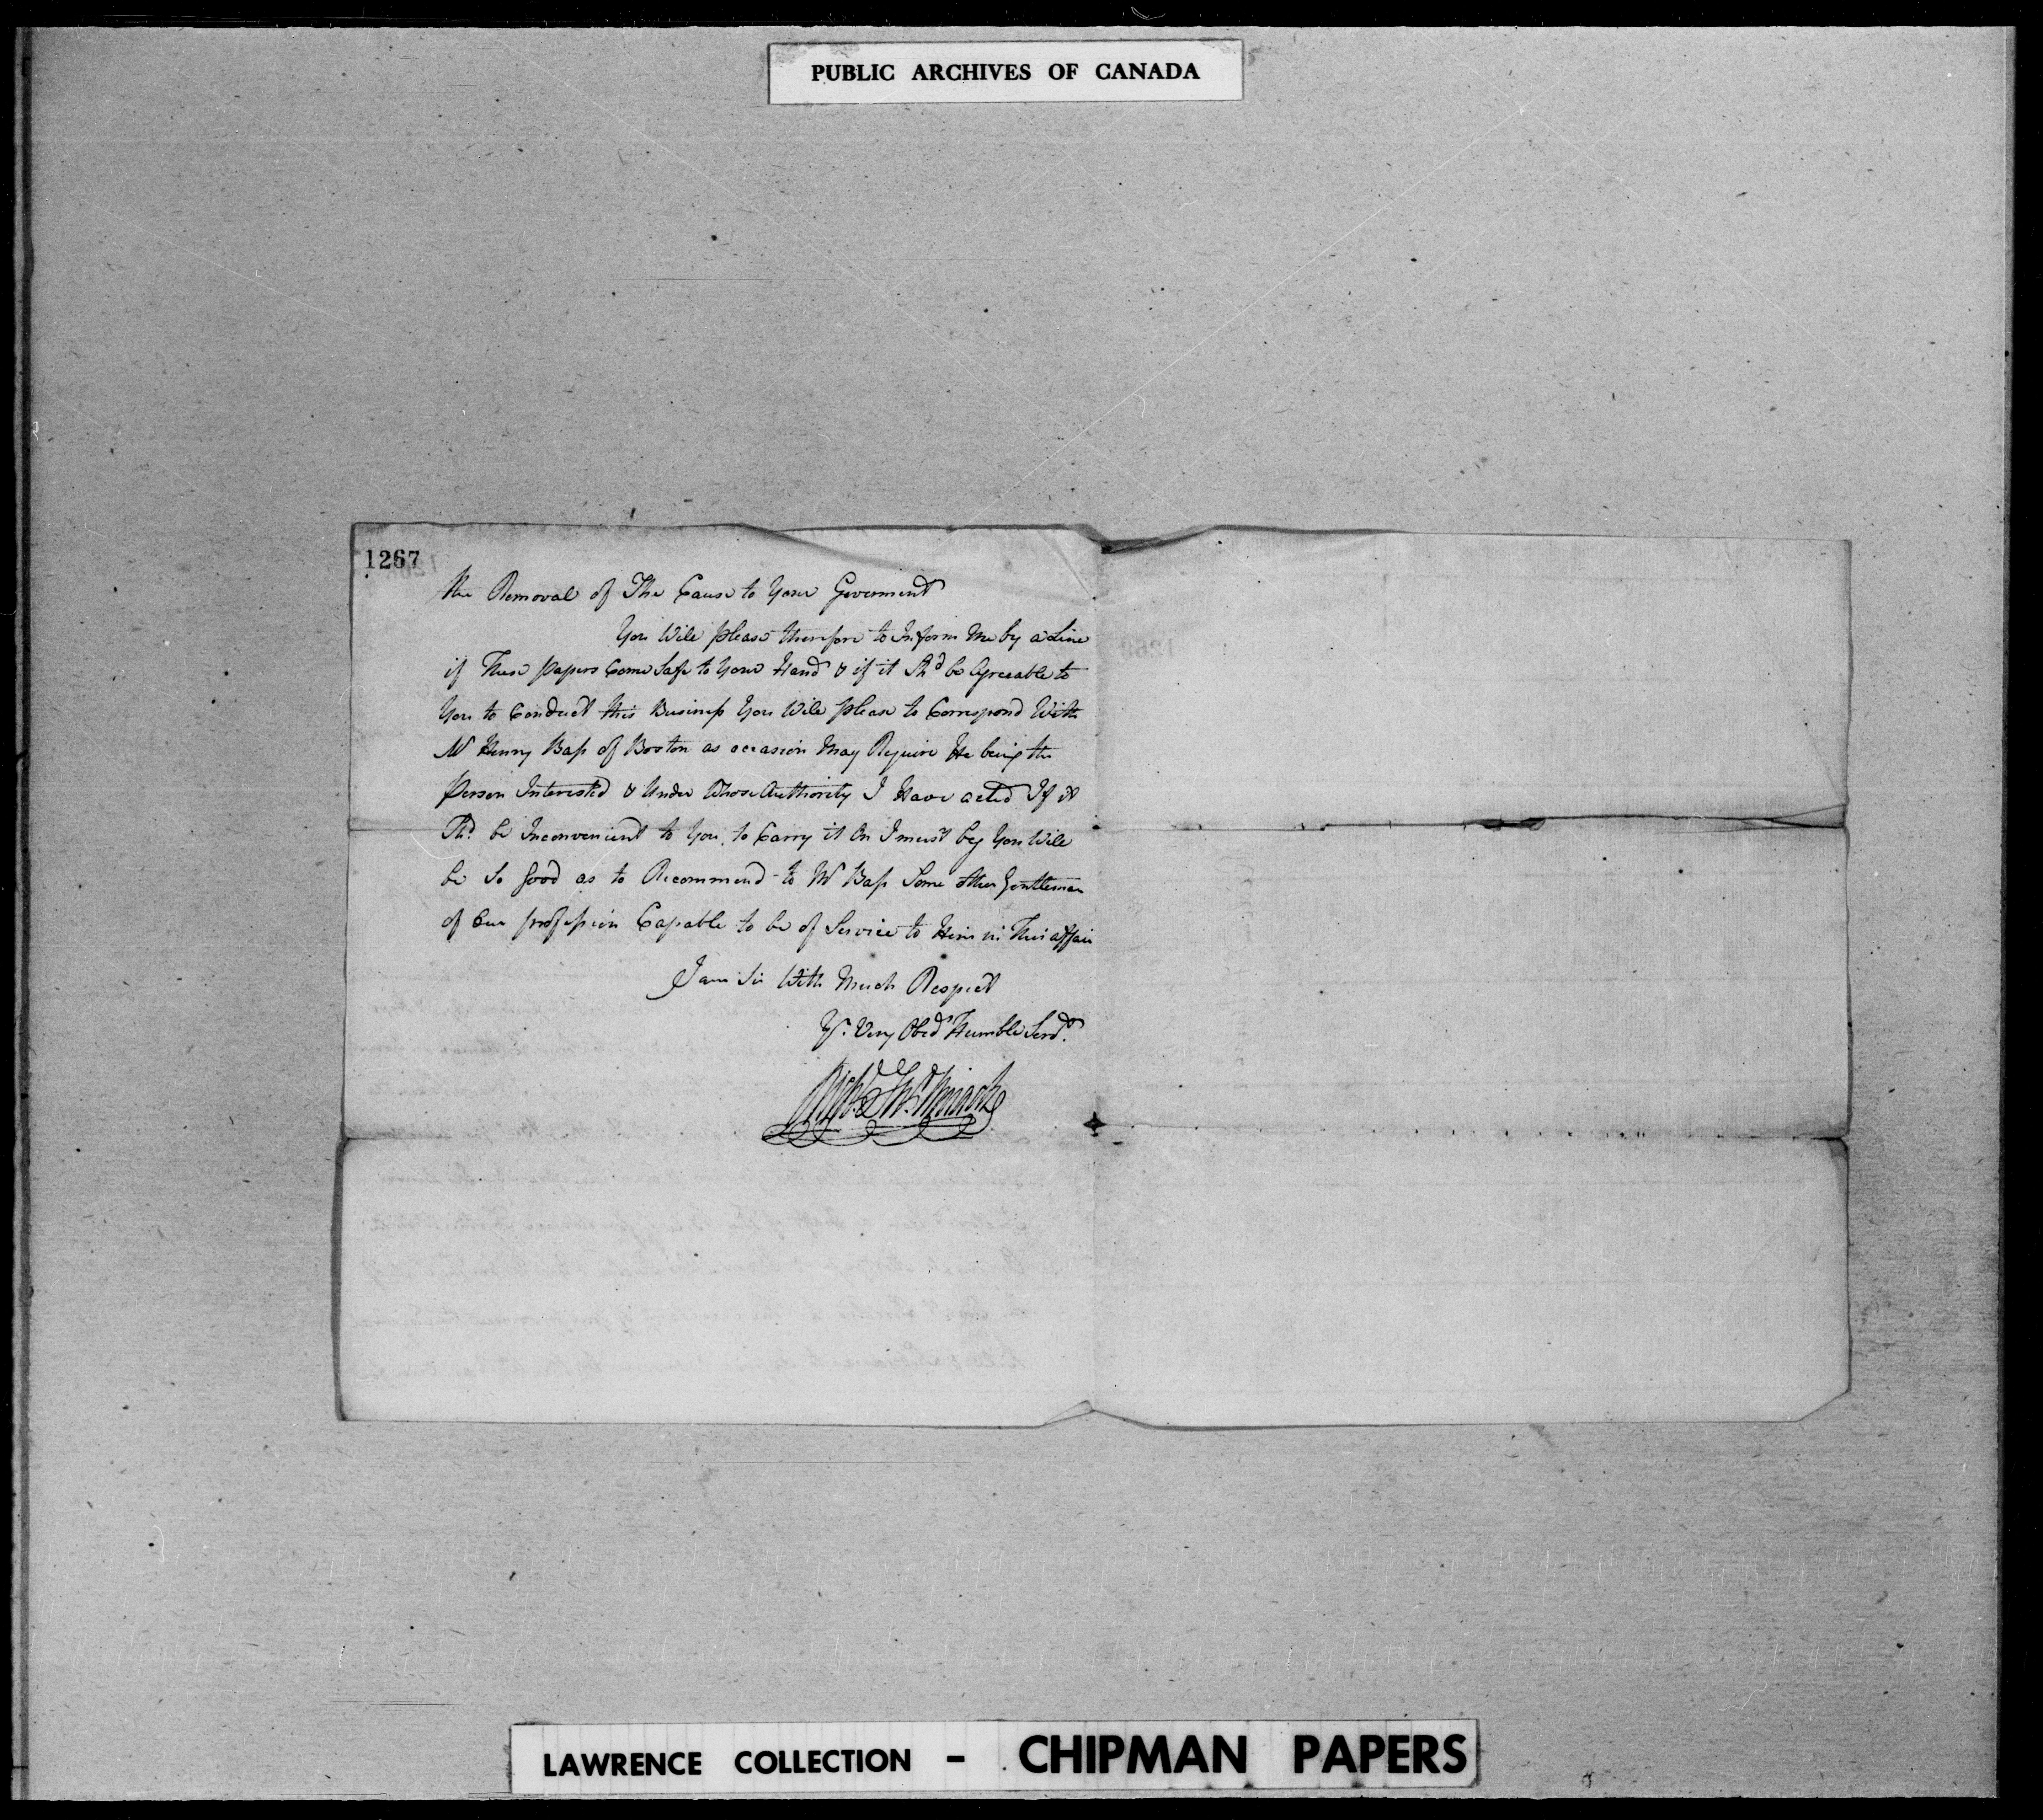 PUBLIC ARCHIVES OF CANADA
1267
the Removal of The Cause to Your Goverment
You Will please therefore to Inform Me by a Line
if These papers Come Safe to Your Hand & if it Shd be Agreeable to
You to Conduct this Business You Will please to Correspond With
Mr Henry Bass of Boston as occasion May Require He being the
Person Interested & Under Whose Authority I Have acted If it
Shd. be Inconvenient to You to Carry it On I must beg You Will
be So good as to Recommend to Mr Bass Some other Gentleman
of Our profession Capable to be of Service to Him in This affair
I am Sir With Much Respect
Yr. Very Obedt Humble Servt.
LAWRENCE COLLECTION - CHIPMAN PAPERS